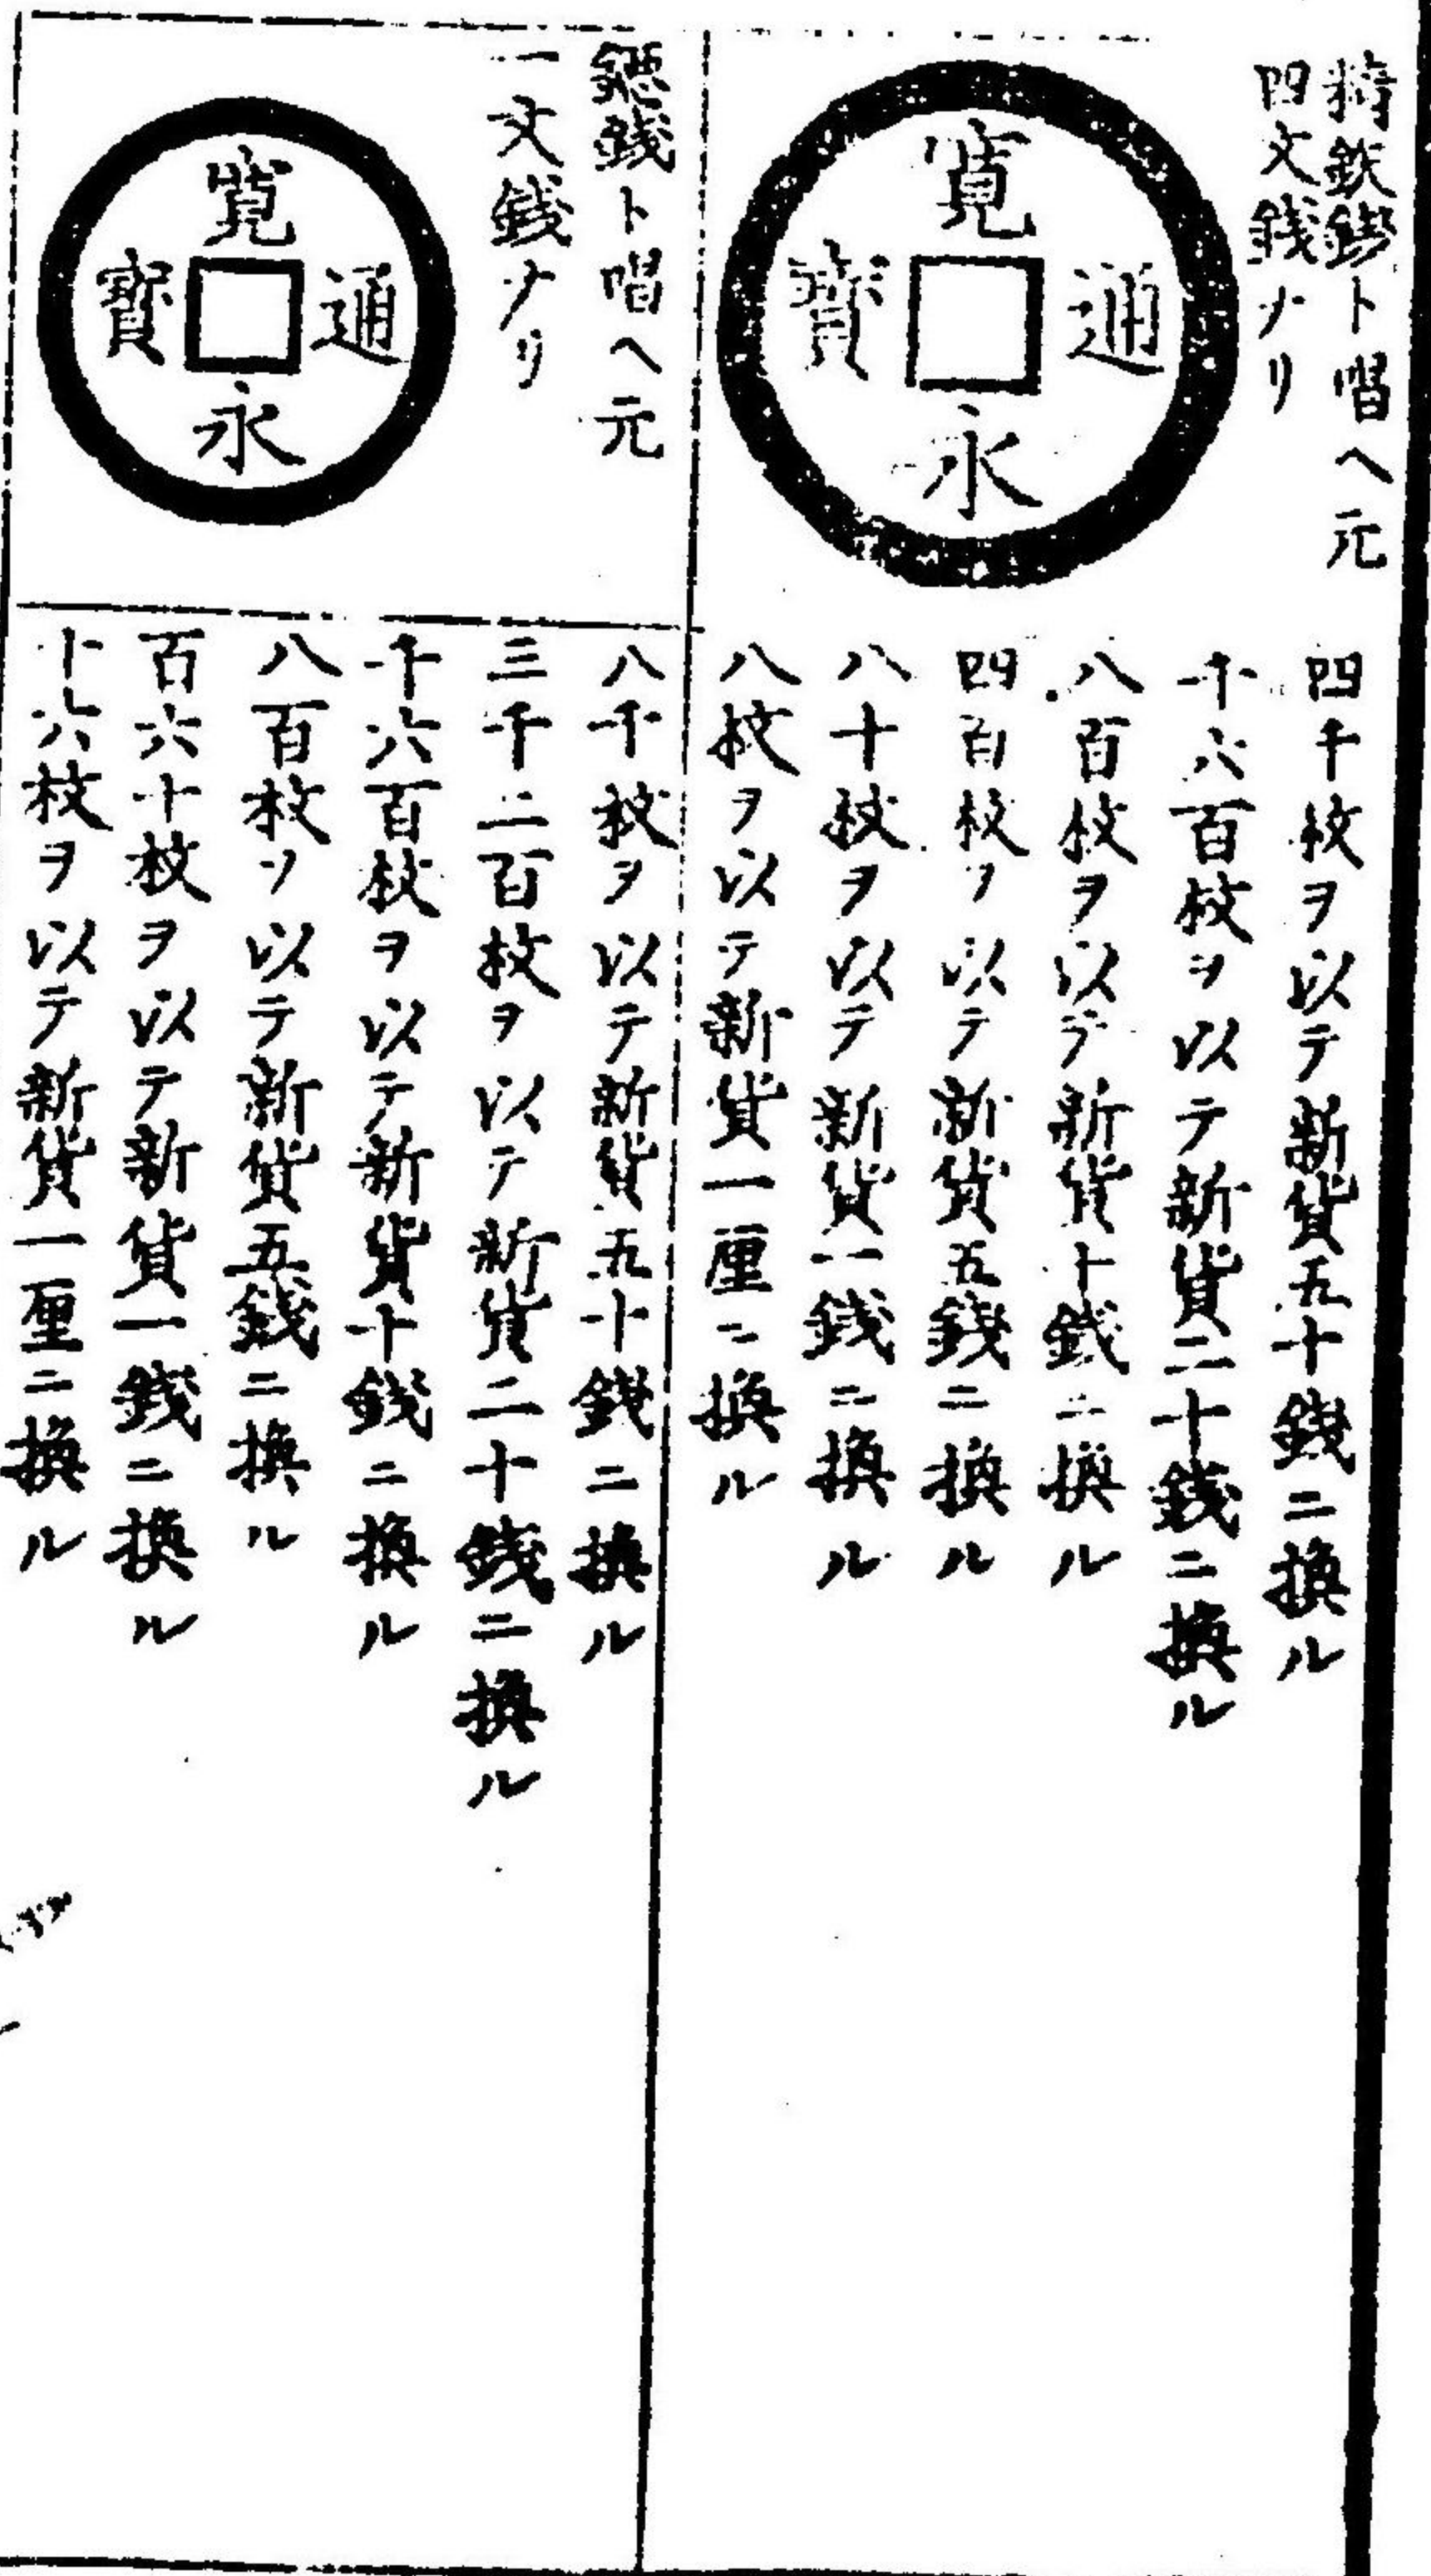 精鉄銭ト唱ヘ元
四文銭ナリ
寛
永
通
寳
四千枚ヲ以テ新貨五十銭ニ換ル
千六百枚ヲ以テ新貨二十銭ニ換ル
八百枚ヲ以テ新貨十銭ニ換ル
四百枚ヲ以テ新貨五銭ニ換ル
八十枚ヲ以テ新貨一銭ニ換ル
八枚ヲ以テ新貨一厘ニ換ル
鐚銭ト唱ヘ元
一文銭ナリ
寛
永
通
寳
八千枚ヲ以テ新貨五十銭ニ換ル
三千二百枚ヲ以テ新貨二十銭ニ換ル
千六百枚ヲ以テ新貨十銭ニ換ル
八百枚ヲ以テ新貨五銭ニ換ル
百六十枚ヲ以テ新貨一銭ニ換ル
十六枚ヲ以テ新貨一厘ニ換ル